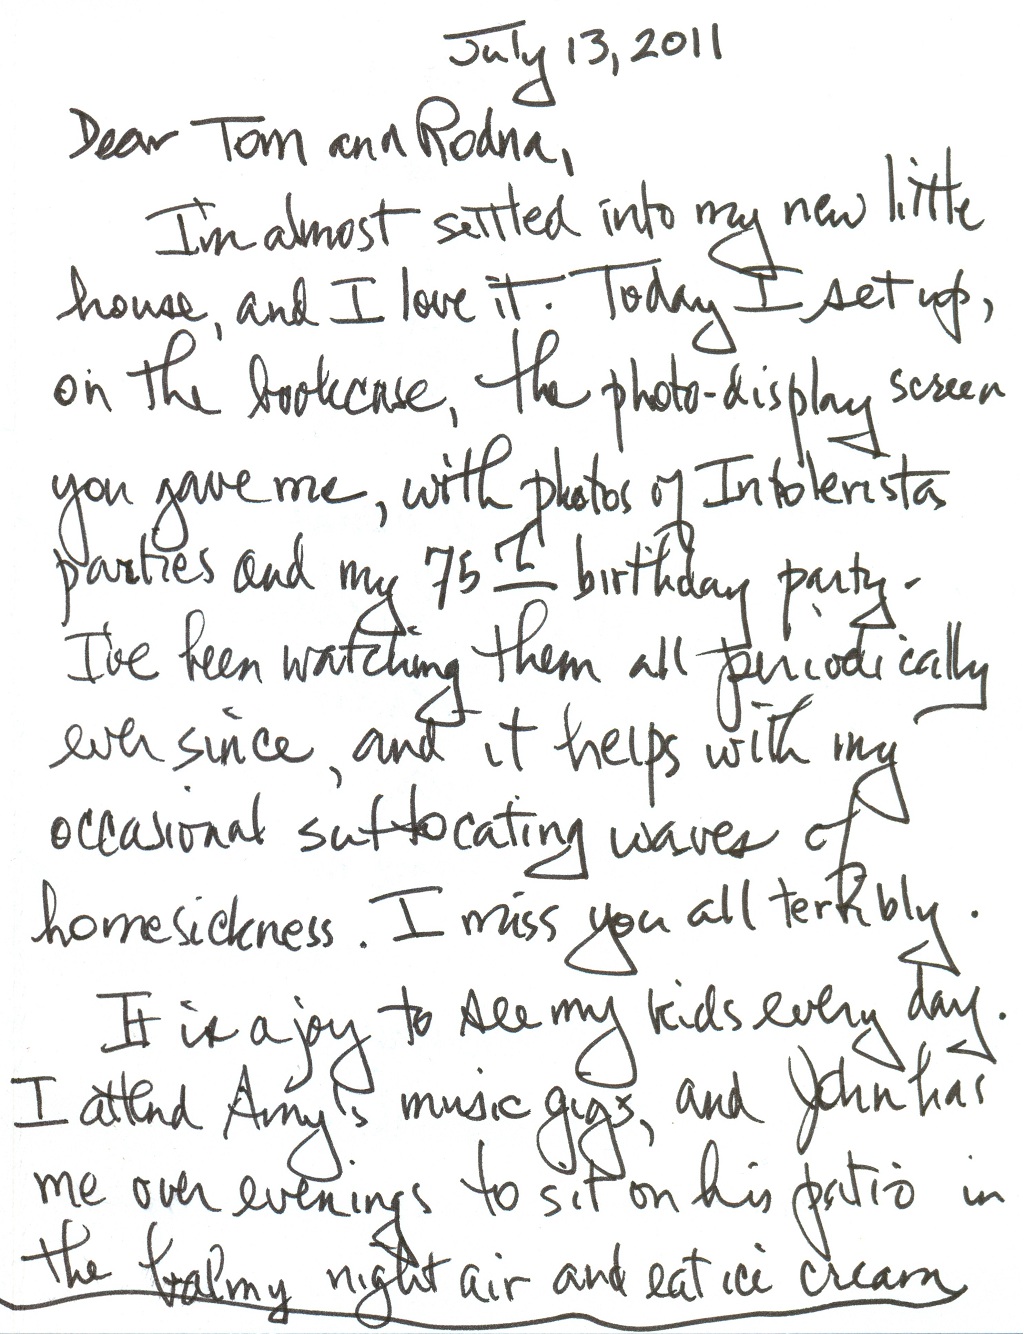 July 13, 2011
Dear Tom and Rodna,
I'm almost settled into my new little
house, and I love it. Today I set up,
on the bookcase, the photo-display screen
you gave me, with photos of Intolerista
parties and my 75th birthday party.
I've been watching them all periodically
ever since, and it helps with my
occasional suffocating waves of
homesickness. I miss you all terribly.
It is a joy to see my kids every day.
I attend Amy's music gigs, and John has
me over evenings to sit on his patio in
the balmy night air and eat ice cream